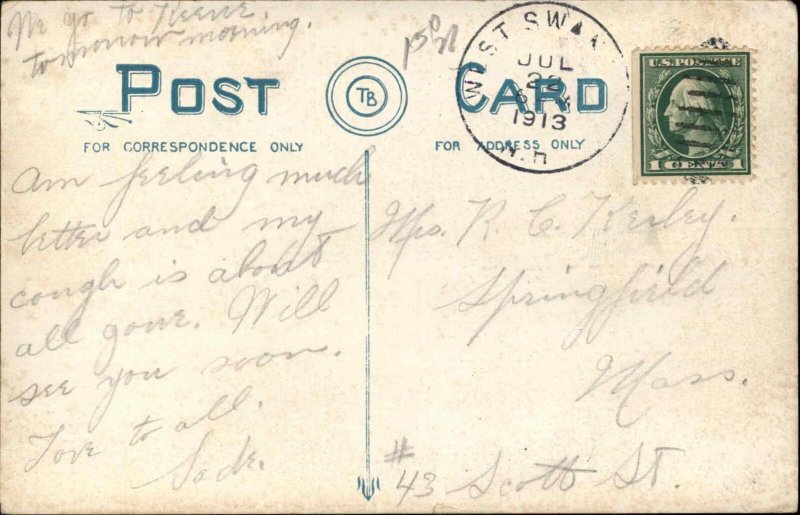 We go to Keene
tomorrow morning.
POST CARD
TB
FOR CORRESPONDENCE ONLY
FOR ADDRESS ONLY
WEST SWAN
JUL
1913
N.H
U.S. POSTAGE
1 CENTS 1
am feeling much
better and my
cough is about
all gone. Will
see you soon.
Love to all.
Sade.
Mrs. R. C. Kerley.
Springfield
Mass.
# 43 Scott St.